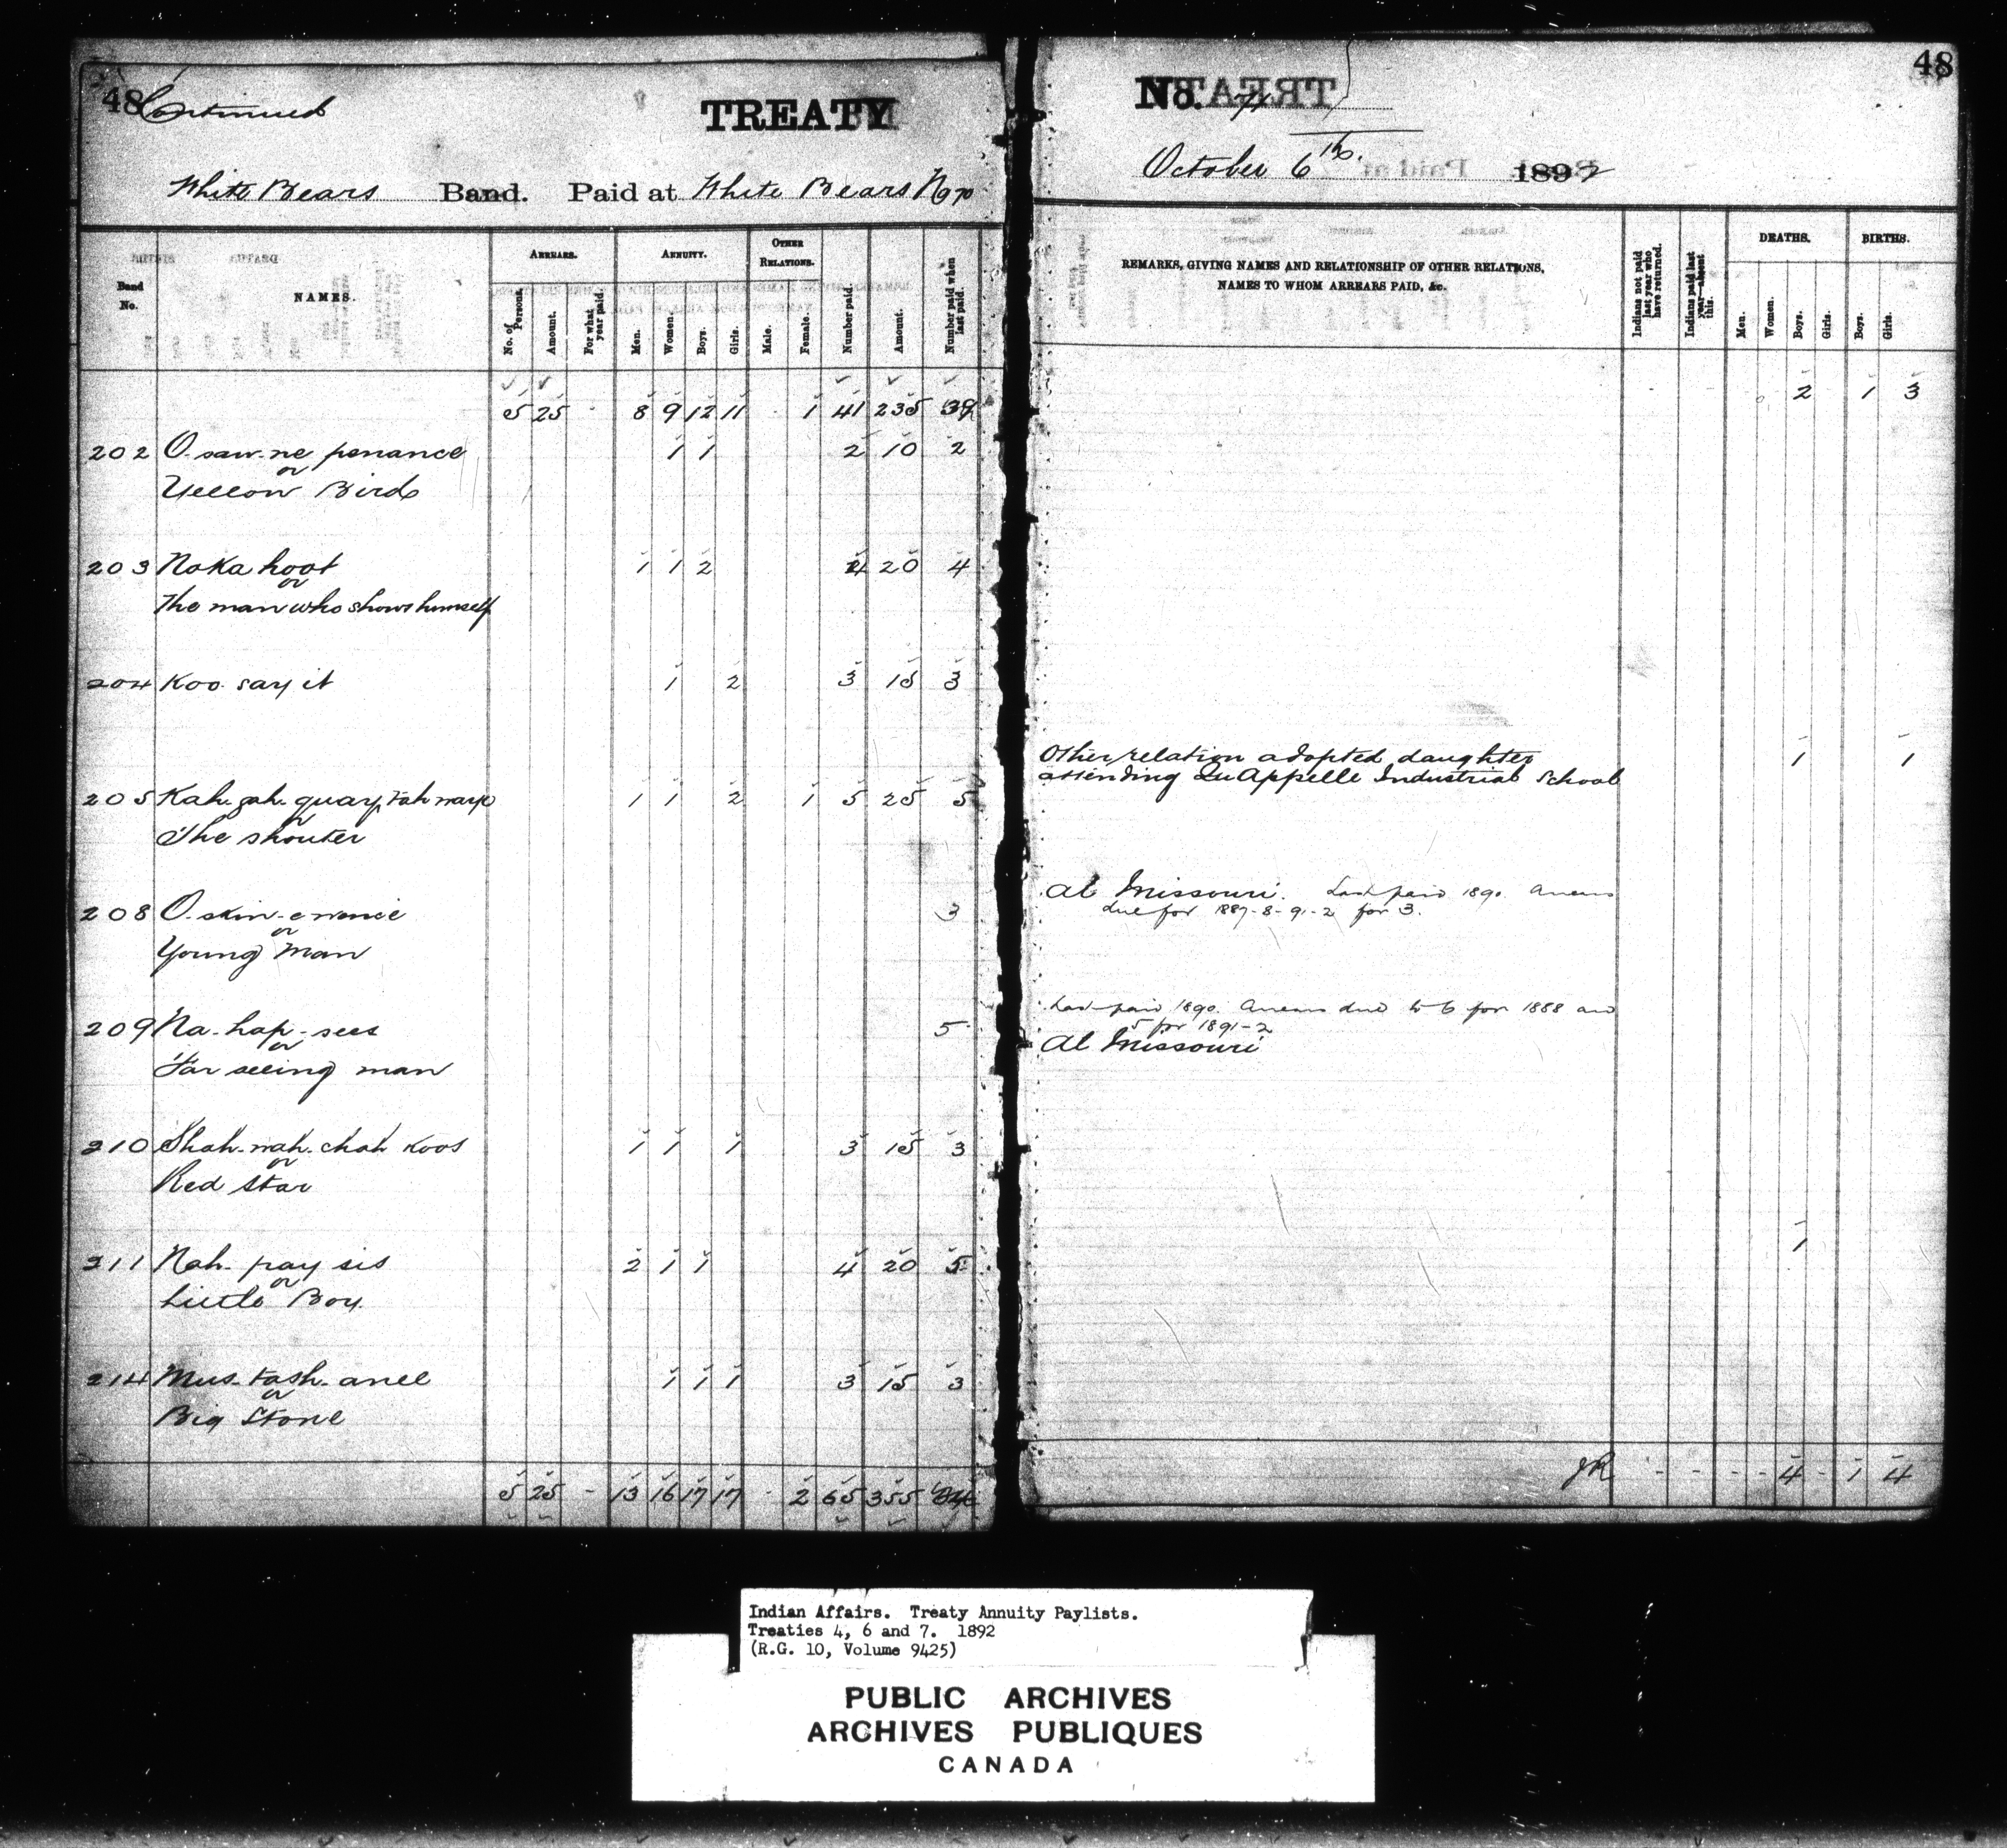 48 Continued TREATY
White Bears Band. Paid at White Bears No 70
Band No. NAMES. ARREARS. No. of Persons. Amount. For what year paid. ANNUITY. Men. Women. Boys. Girls. OTHER RELATIONS. Male. Female. Number paid. Amount. Number paid when last paid.
5 25 - 8 9 12 11 - 1 41 235 39
202 O. saw-ne penance 1 1 2 10 2
or
Yellow Bird
203 Noka hoot 1 1 2 4 20 4
or
The man who shows himself
204 Koo say it 1 2 3 15 3
205 Kah. gah. quay, tah waye 1 1 2 1 5 25 5
or
The shouter
208 O. skin-e wence 3
or
Young Man
209 Na-hap-sees 5
or
Far seeing man
210 Shah-wah-chah koos 1 1 1 3 15 3
or
Red Star
211 Nah-pay sis 2 1 1 4 20 5
or
Little Boy.
214 Mus-tash-anee 1 1 1 3 15 3
or
Big Stone
5 25 - 13 16 17 17 - 2 65 355
No. 4 48
October 6th. 1892
REMARKS, GIVING NAMES AND RELATIONSHIP OF OTHER RELATIONS,
NAMES TO WHOM ARREARS PAID, &c.
Indians not paid last year who have returned. Indians paid last year—absent this. DEATHS. Men. Women. Boys. Girls. BIRTHS. Boys. Girls.
2 1 3
Other relation adopted daughter 1 1
attending Qu'Appelle Industrial School
At Missouri. Last paid 1890. Arrears
due for 1887-8-91-2 for 3.
Last paid 1890. Arrears due to 6 for 1888 and
5 for 1891-2
At Missouri
1
JR - - - - 4 - 1 4
Indian Affairs. Treaty Annuity Paylists.
Treaties 4, 6 and 7. 1892
(R.G. 10, Volume 9425)
PUBLIC ARCHIVES
ARCHIVES PUBLIQUES
CANADA